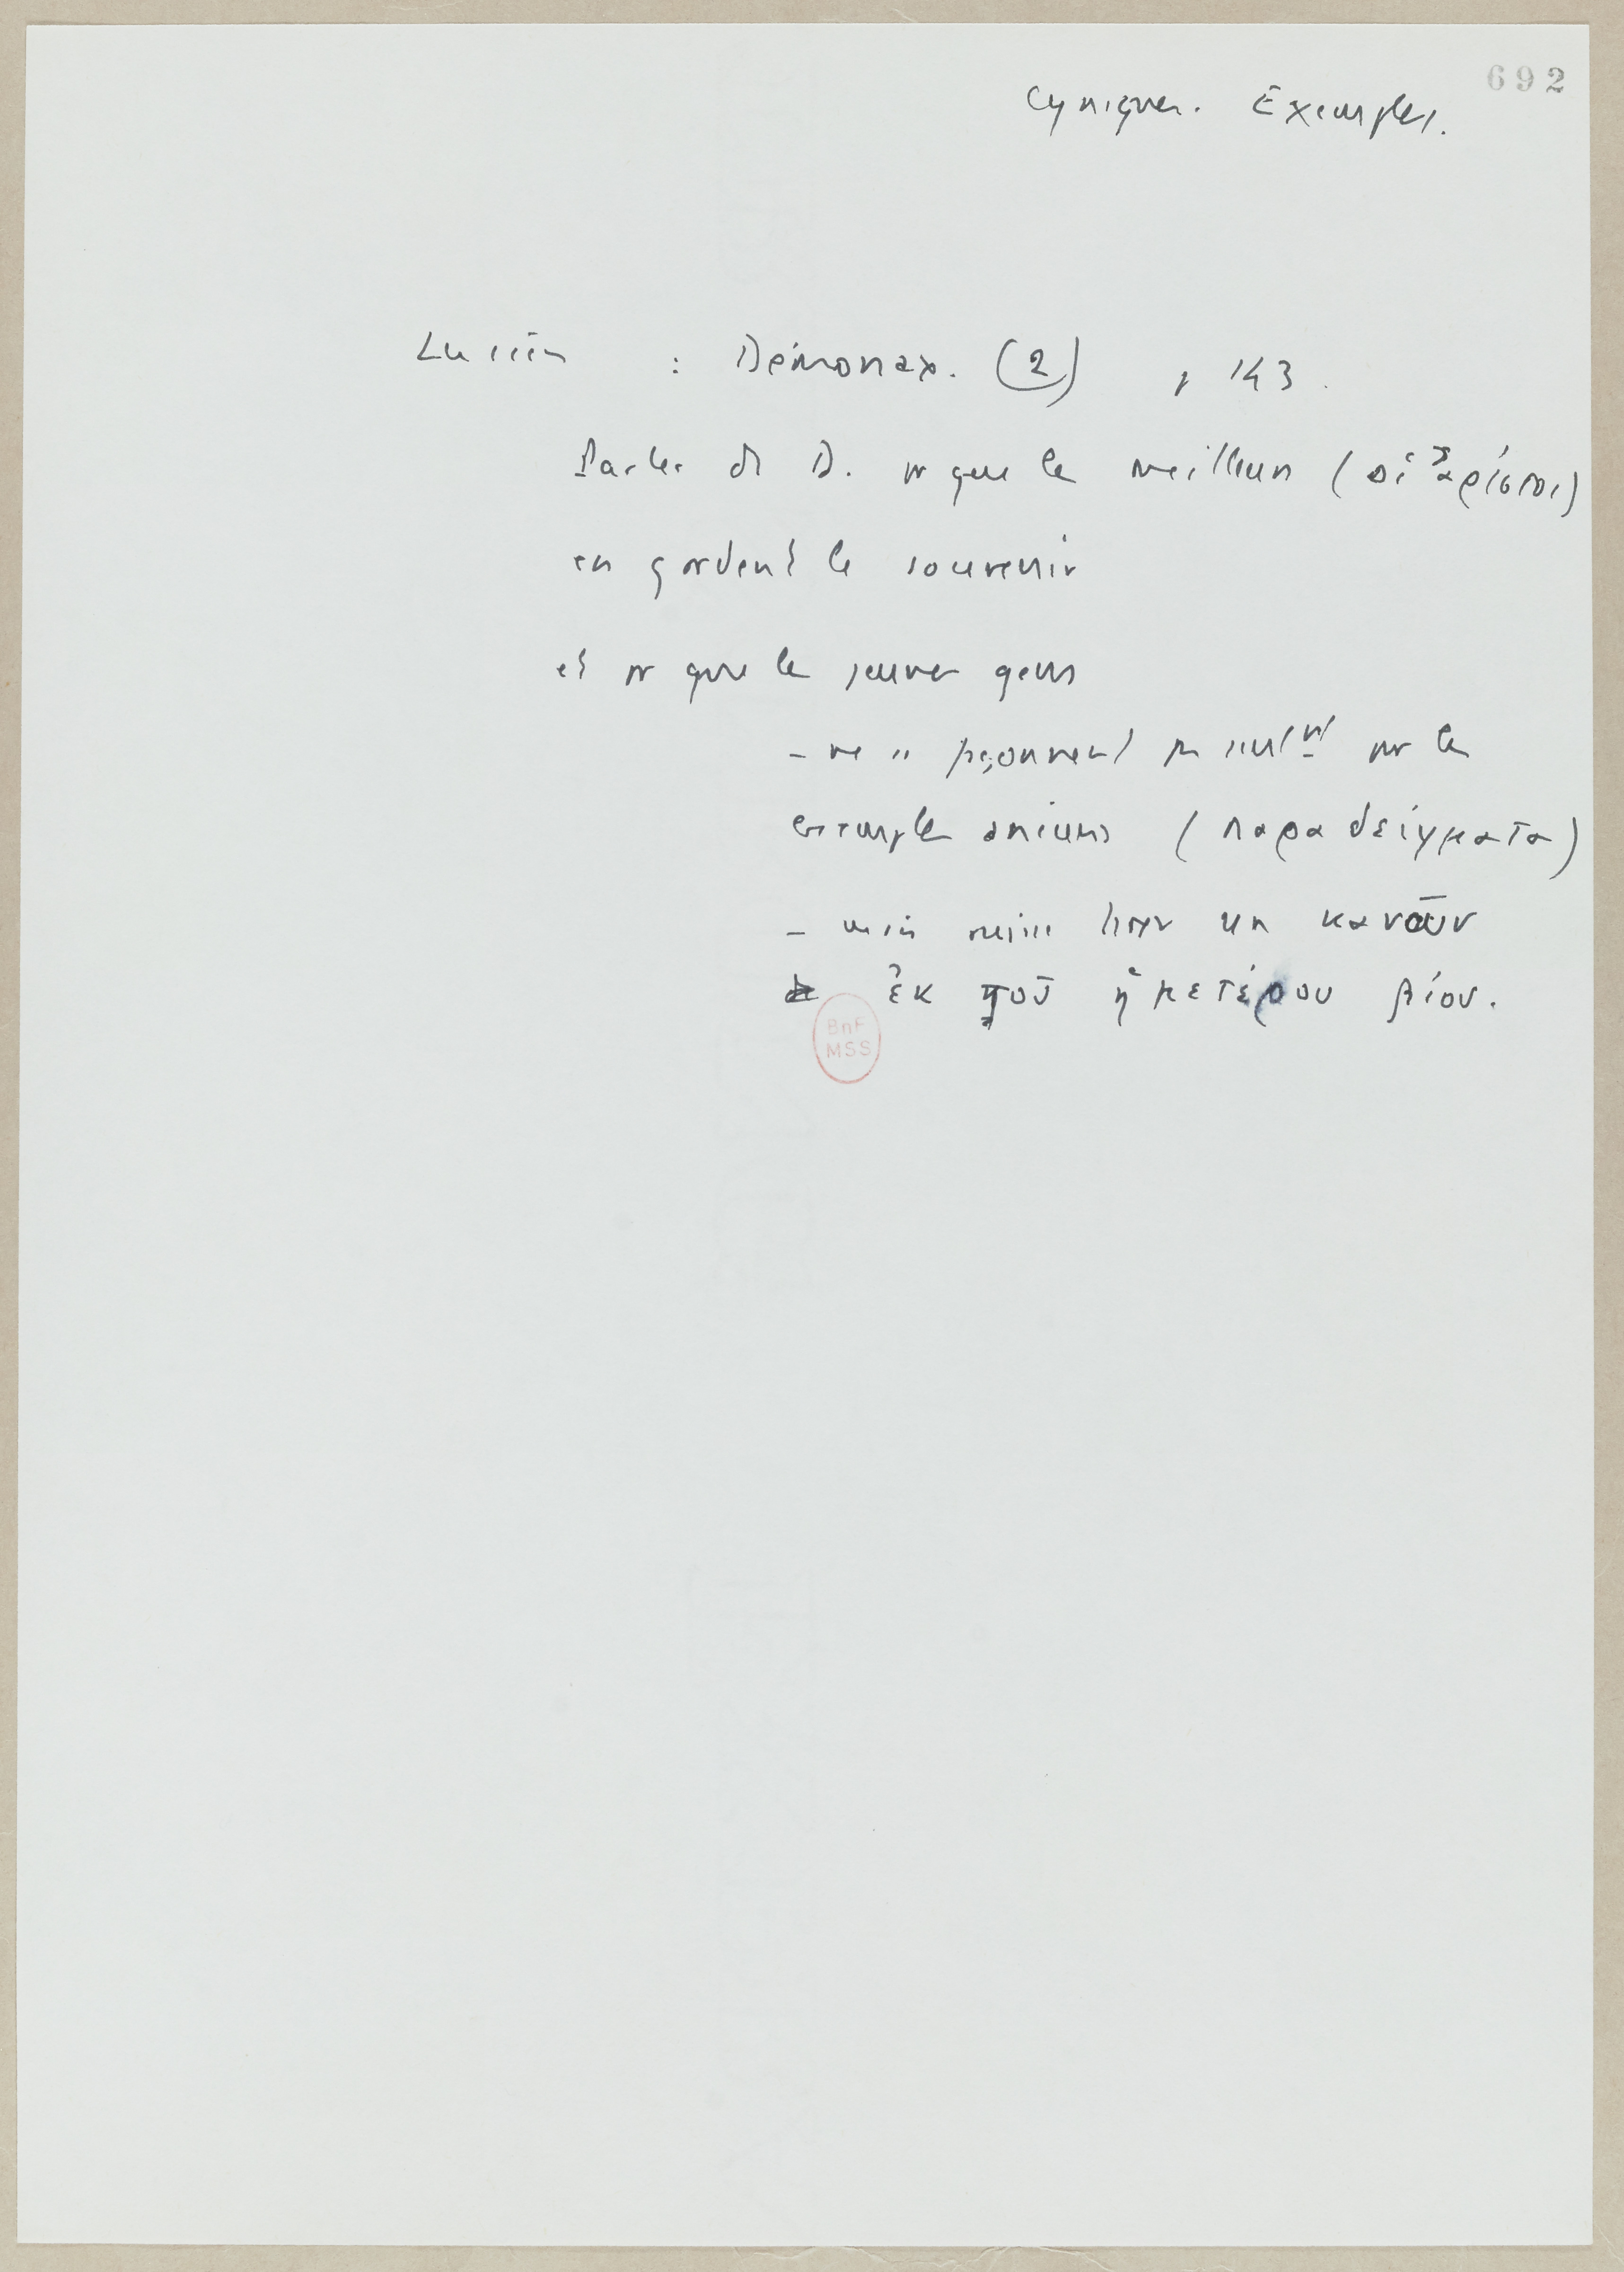 692
Cyniques. Exemples.
Lucien : Démonax. (2) p 143.
Parler de D. pr que les meilleurs (οἱ ἄριστοι)
en gardent le souvenir
et pr que les jeunes gens
- ne se façonnent pas seulnt sur les
exemples anciens (παραδείγματα)
- mais aussi un κανών
ἐκ τοῦ ἡμετέρου βίου.
BnF
MSS